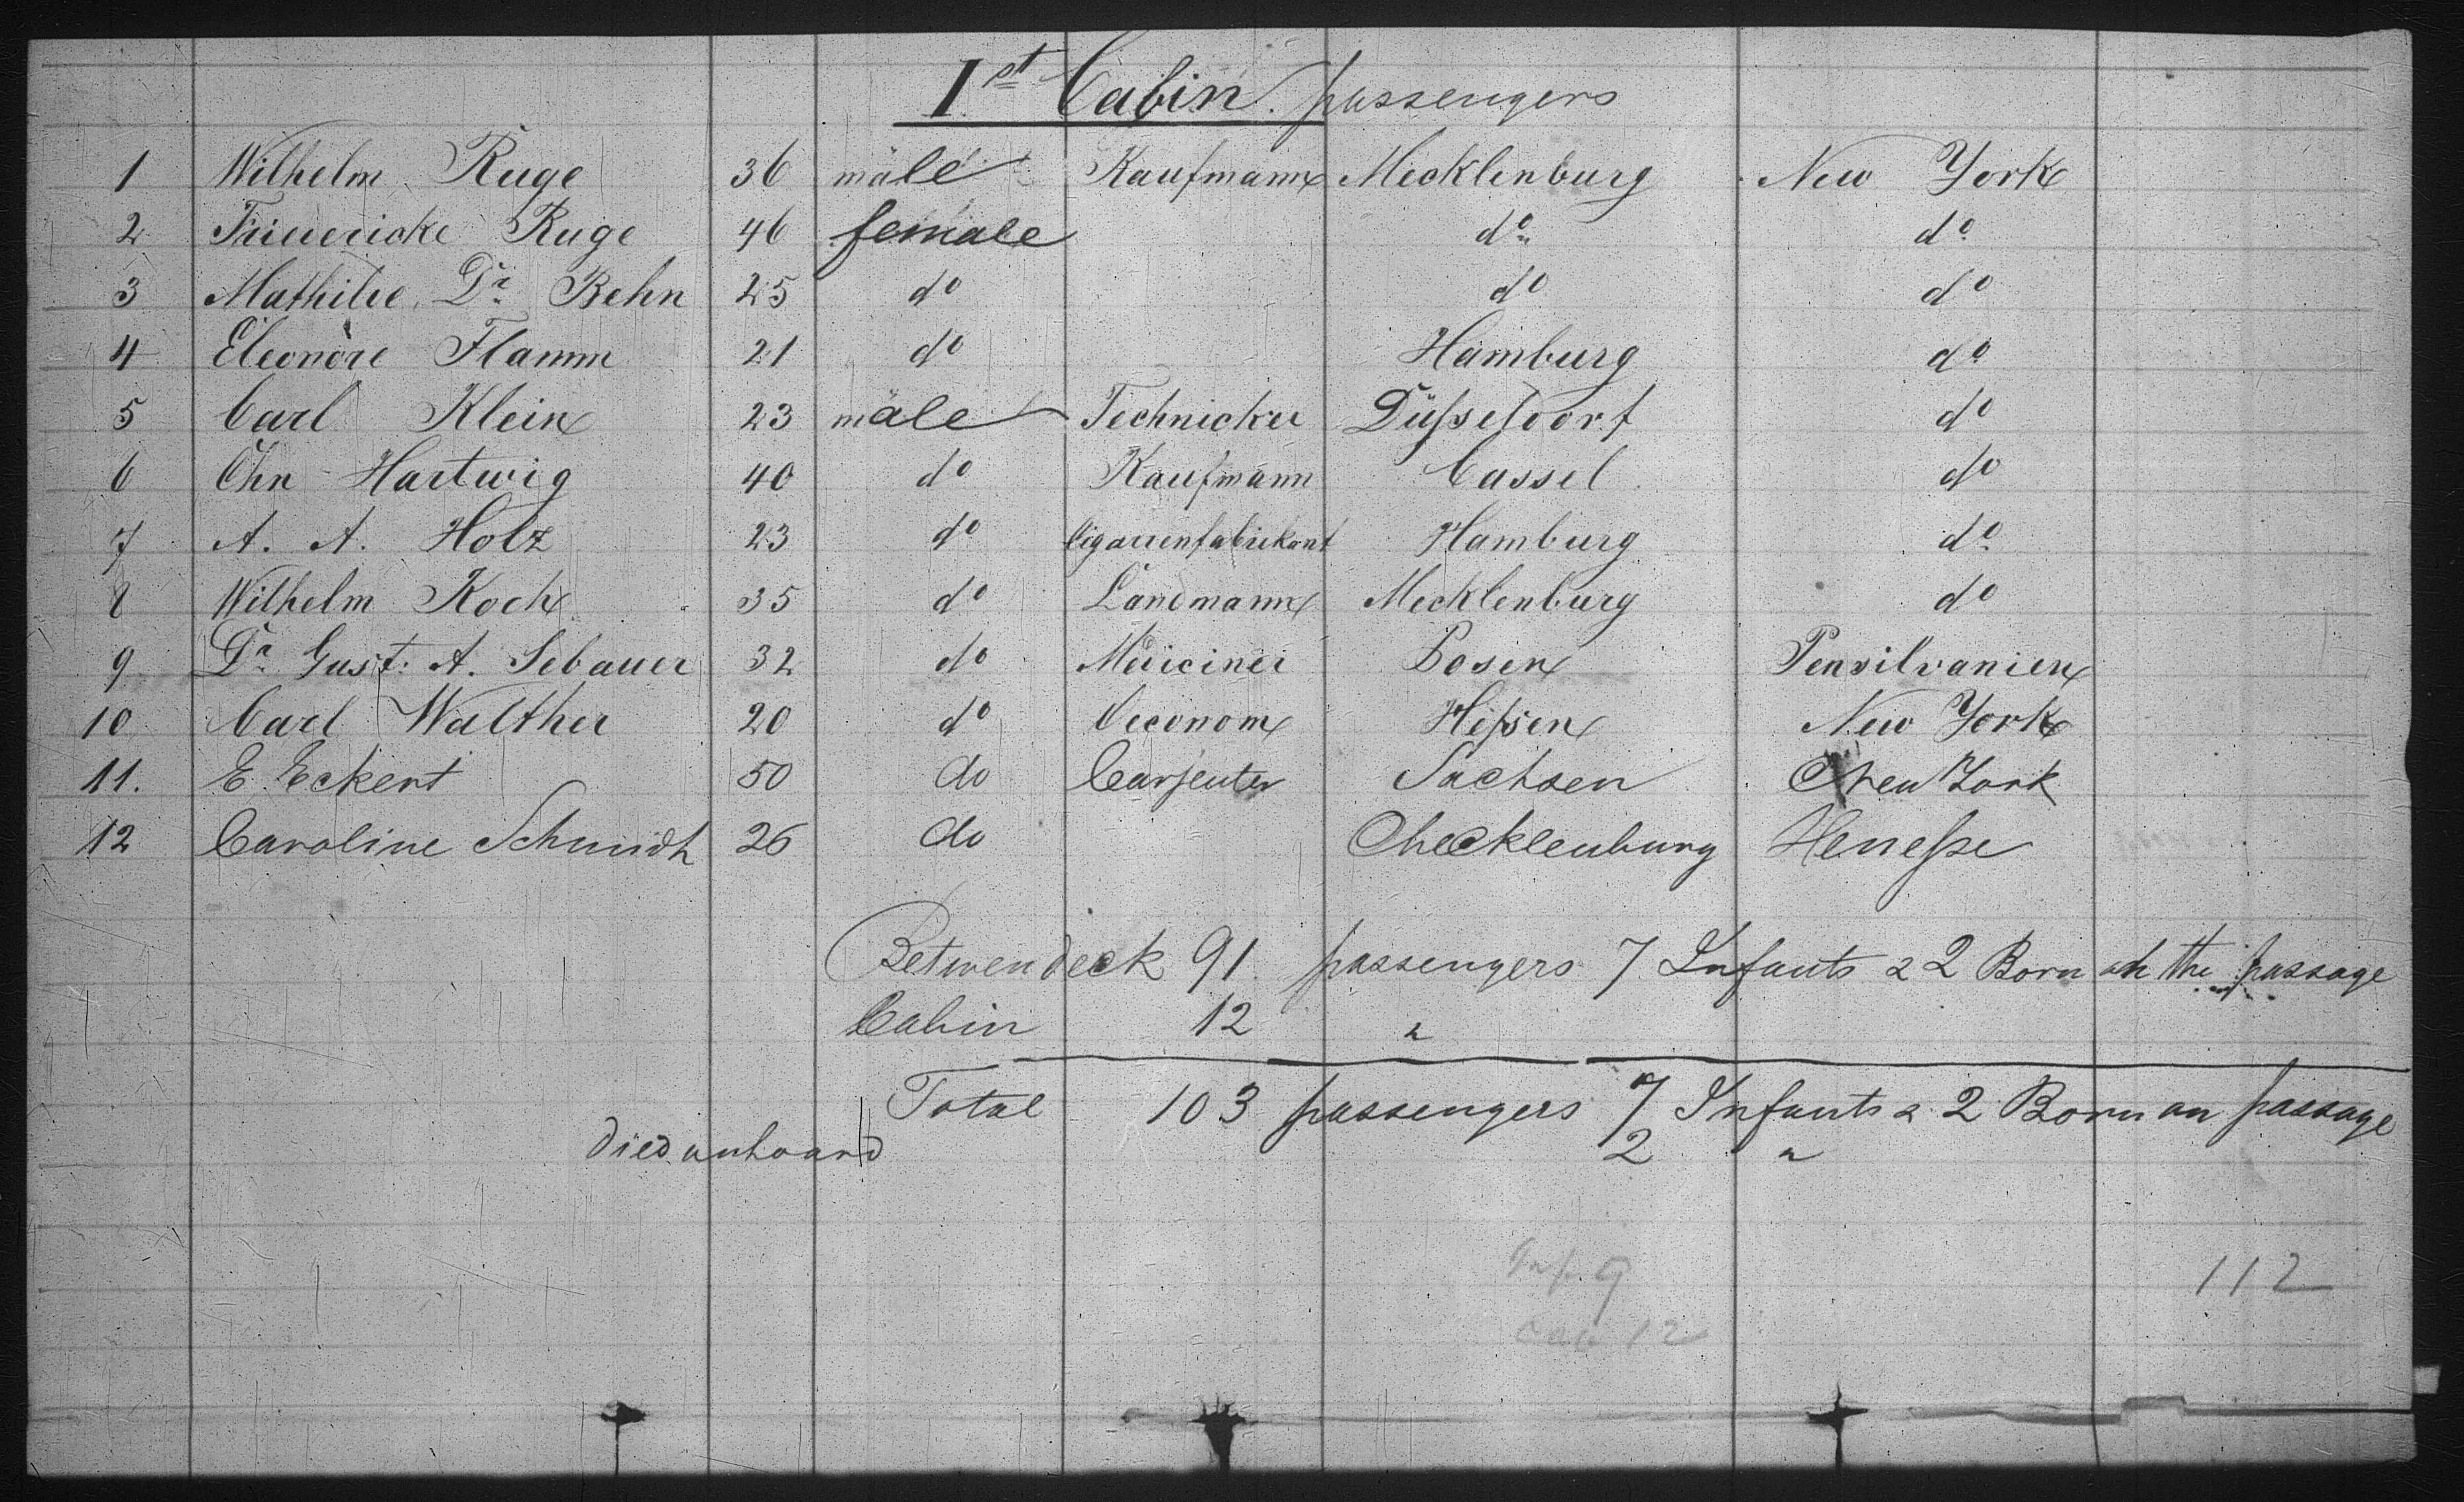 1st Cabin. passengers
1 Wilhelm Ruge 36 male Kaufmann Mecklenburg New York
2 Friedericke Ruge 46 female do do
3 Mathilde Dr. Behn 25 do do do
4 Eleonore Flamm 21 do Hamburg do
5 Carl Klein 23 male Technicker Düsseldorf do
6 Chn Hartwig 40 do Kaufmann Cassel do
7 A. A. Holz 23 do Cigarrenfabrikant Hamburg do
8 Wilhelm Koch 35 do Landmann Mecklenburg do
9 Dr. Gust. A. Sebauer 32 do Mediciner Posen Pensilvanien
10 Carl Walther 20 do Oeconom Hessen New York
11. E. Eckert 50 do Carpenter Sachsen New York
12 Caroline Schmidt 26 do Mecklenburg
Betwendeck 91 passengers 7 Infants & 2 Born on the passage
Cabin 12 "
Total 103 passengers 7 Infants & 2 Born on passage
died onboard 2 "
Inf. 9 112
Cab 12